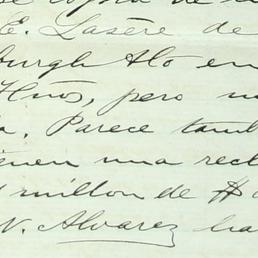 E. Lasère de
burgh Ato en
Hños, pero no
. Parece tamb
ienen una recl
millon de $
N. Alvarez ha